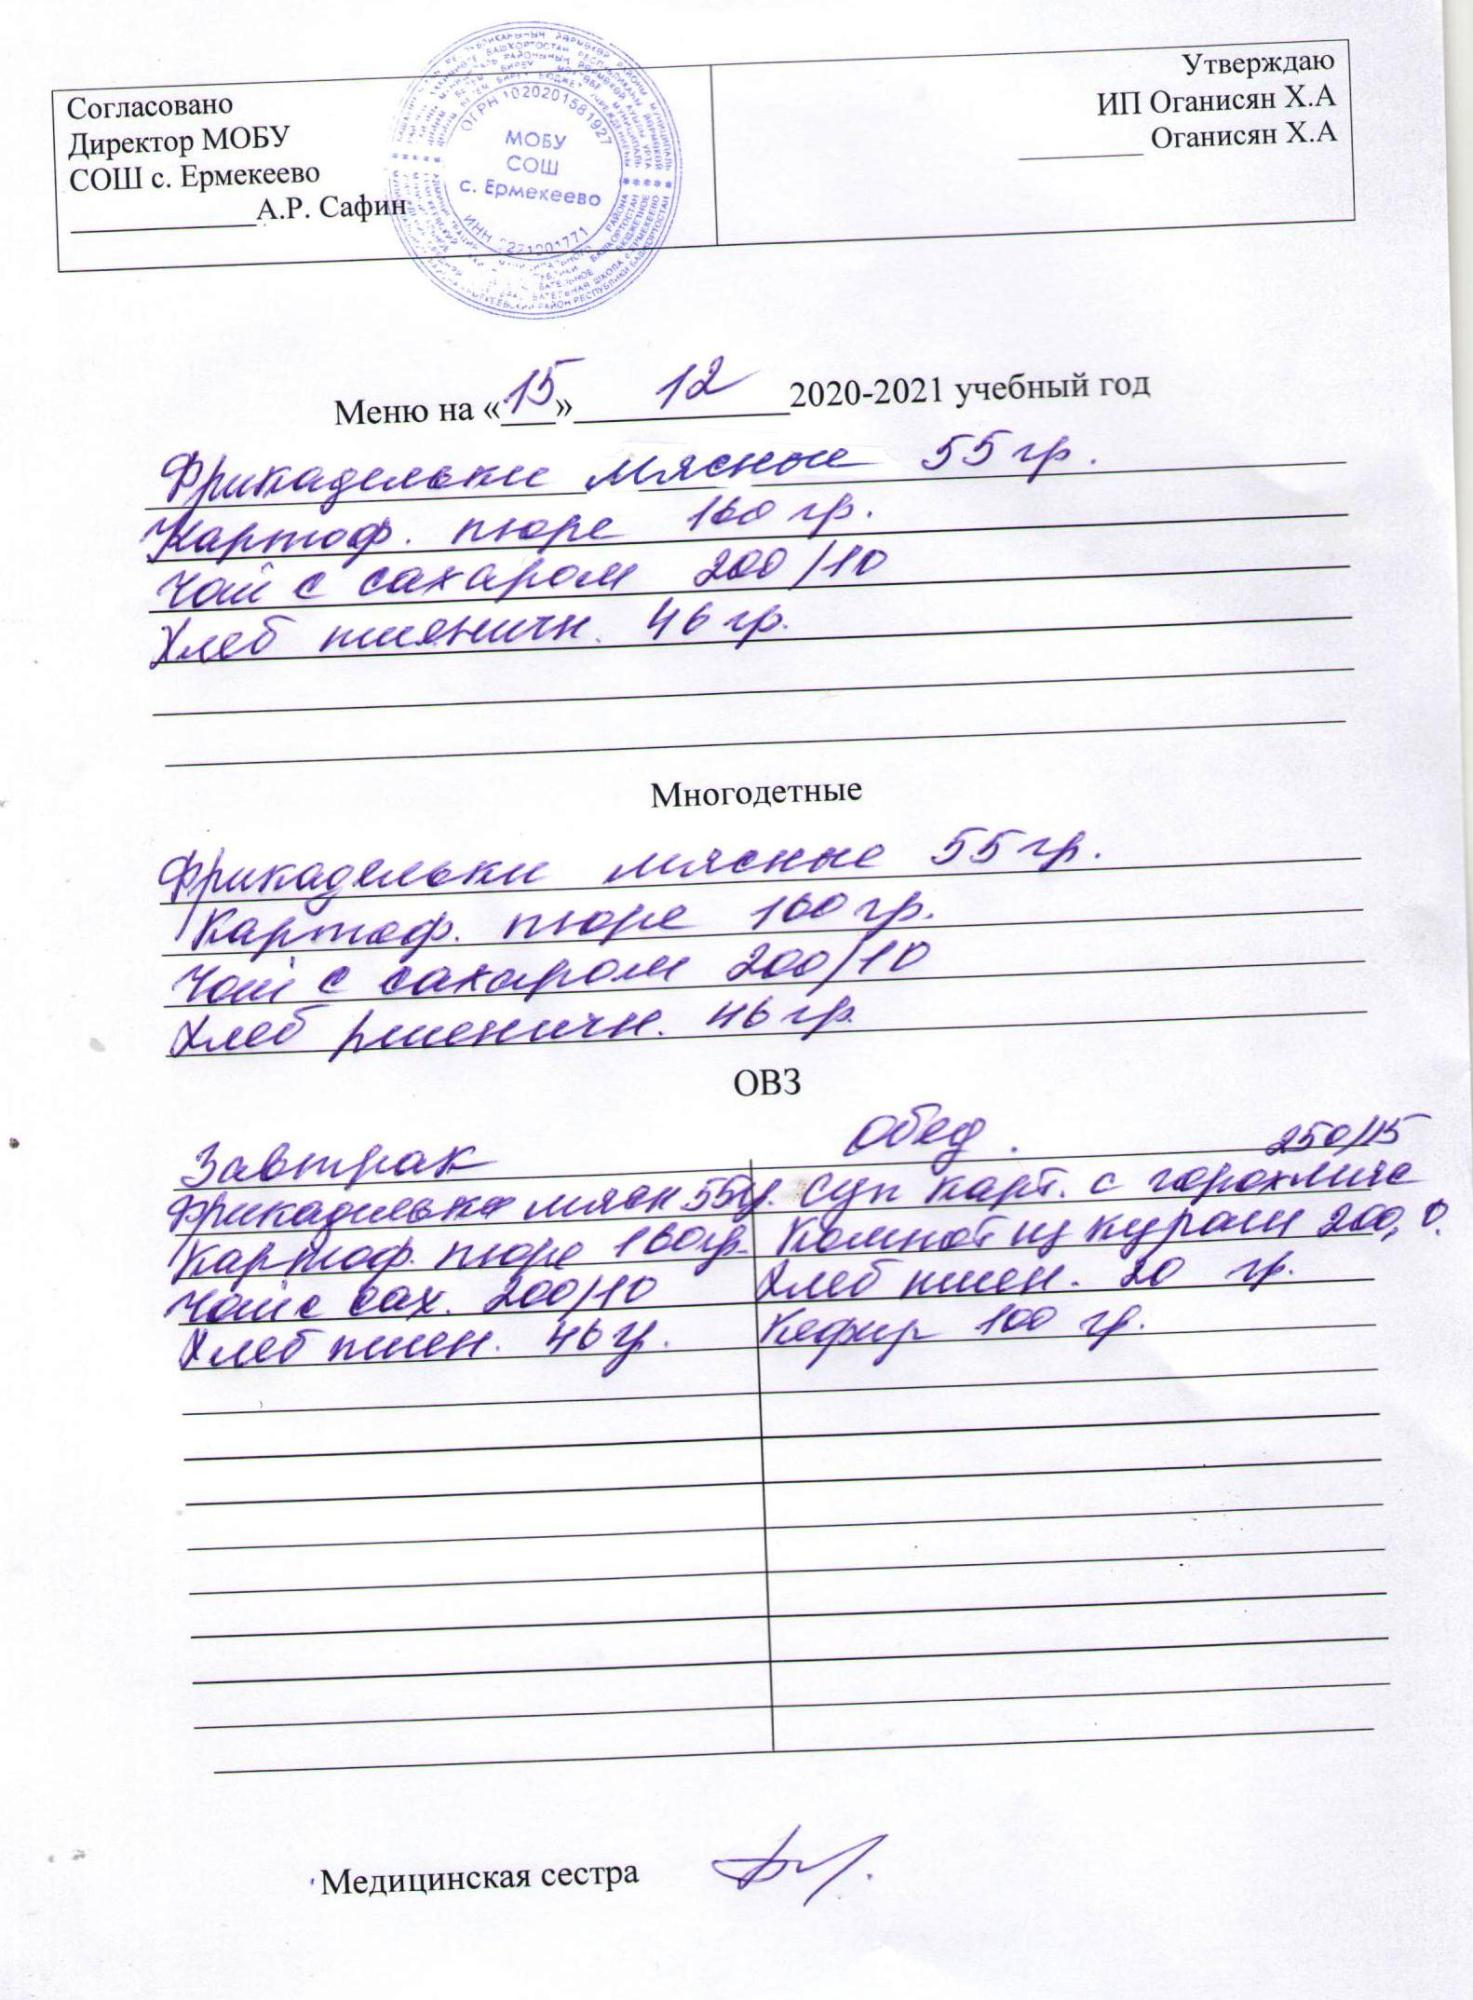 Согласовано
Директор МОБУ
СОШ с. Ермекеево
_____________А.Р. Сафин
ОГРН 1020201581927
МОБУ
СОШ
с. Ермекеево
ИНН
Утверждаю
ИП Оганисян Х.А
_________ Оганисян Х.А
Меню на «15» 12 2020-2021 учебный год
Фрикадельки мясные 55 гр.
Картоф. пюре 160 гр.
Чай с сахаром 200/10
Хлеб пшеничн. 46 гр.
Многодетные
Фрикадельки мясные 55 гр.
Картоф. пюре 160 гр.
Чай с сахаром 200/10
Хлеб пшеничн. 46 гр.
ОВЗ
Завтрак
Фрикадельки мясн 55гр.
Картоф. пюре 160гр.
Чай с сах. 200/10
Хлеб пшен. 46 гр.
Обед.
250/15
Суп карт. с горохмяс
Компот из кураги 200,0.
Хлеб пшен. 20 гр.
Кефир 100 гр.
Медицинская сестра